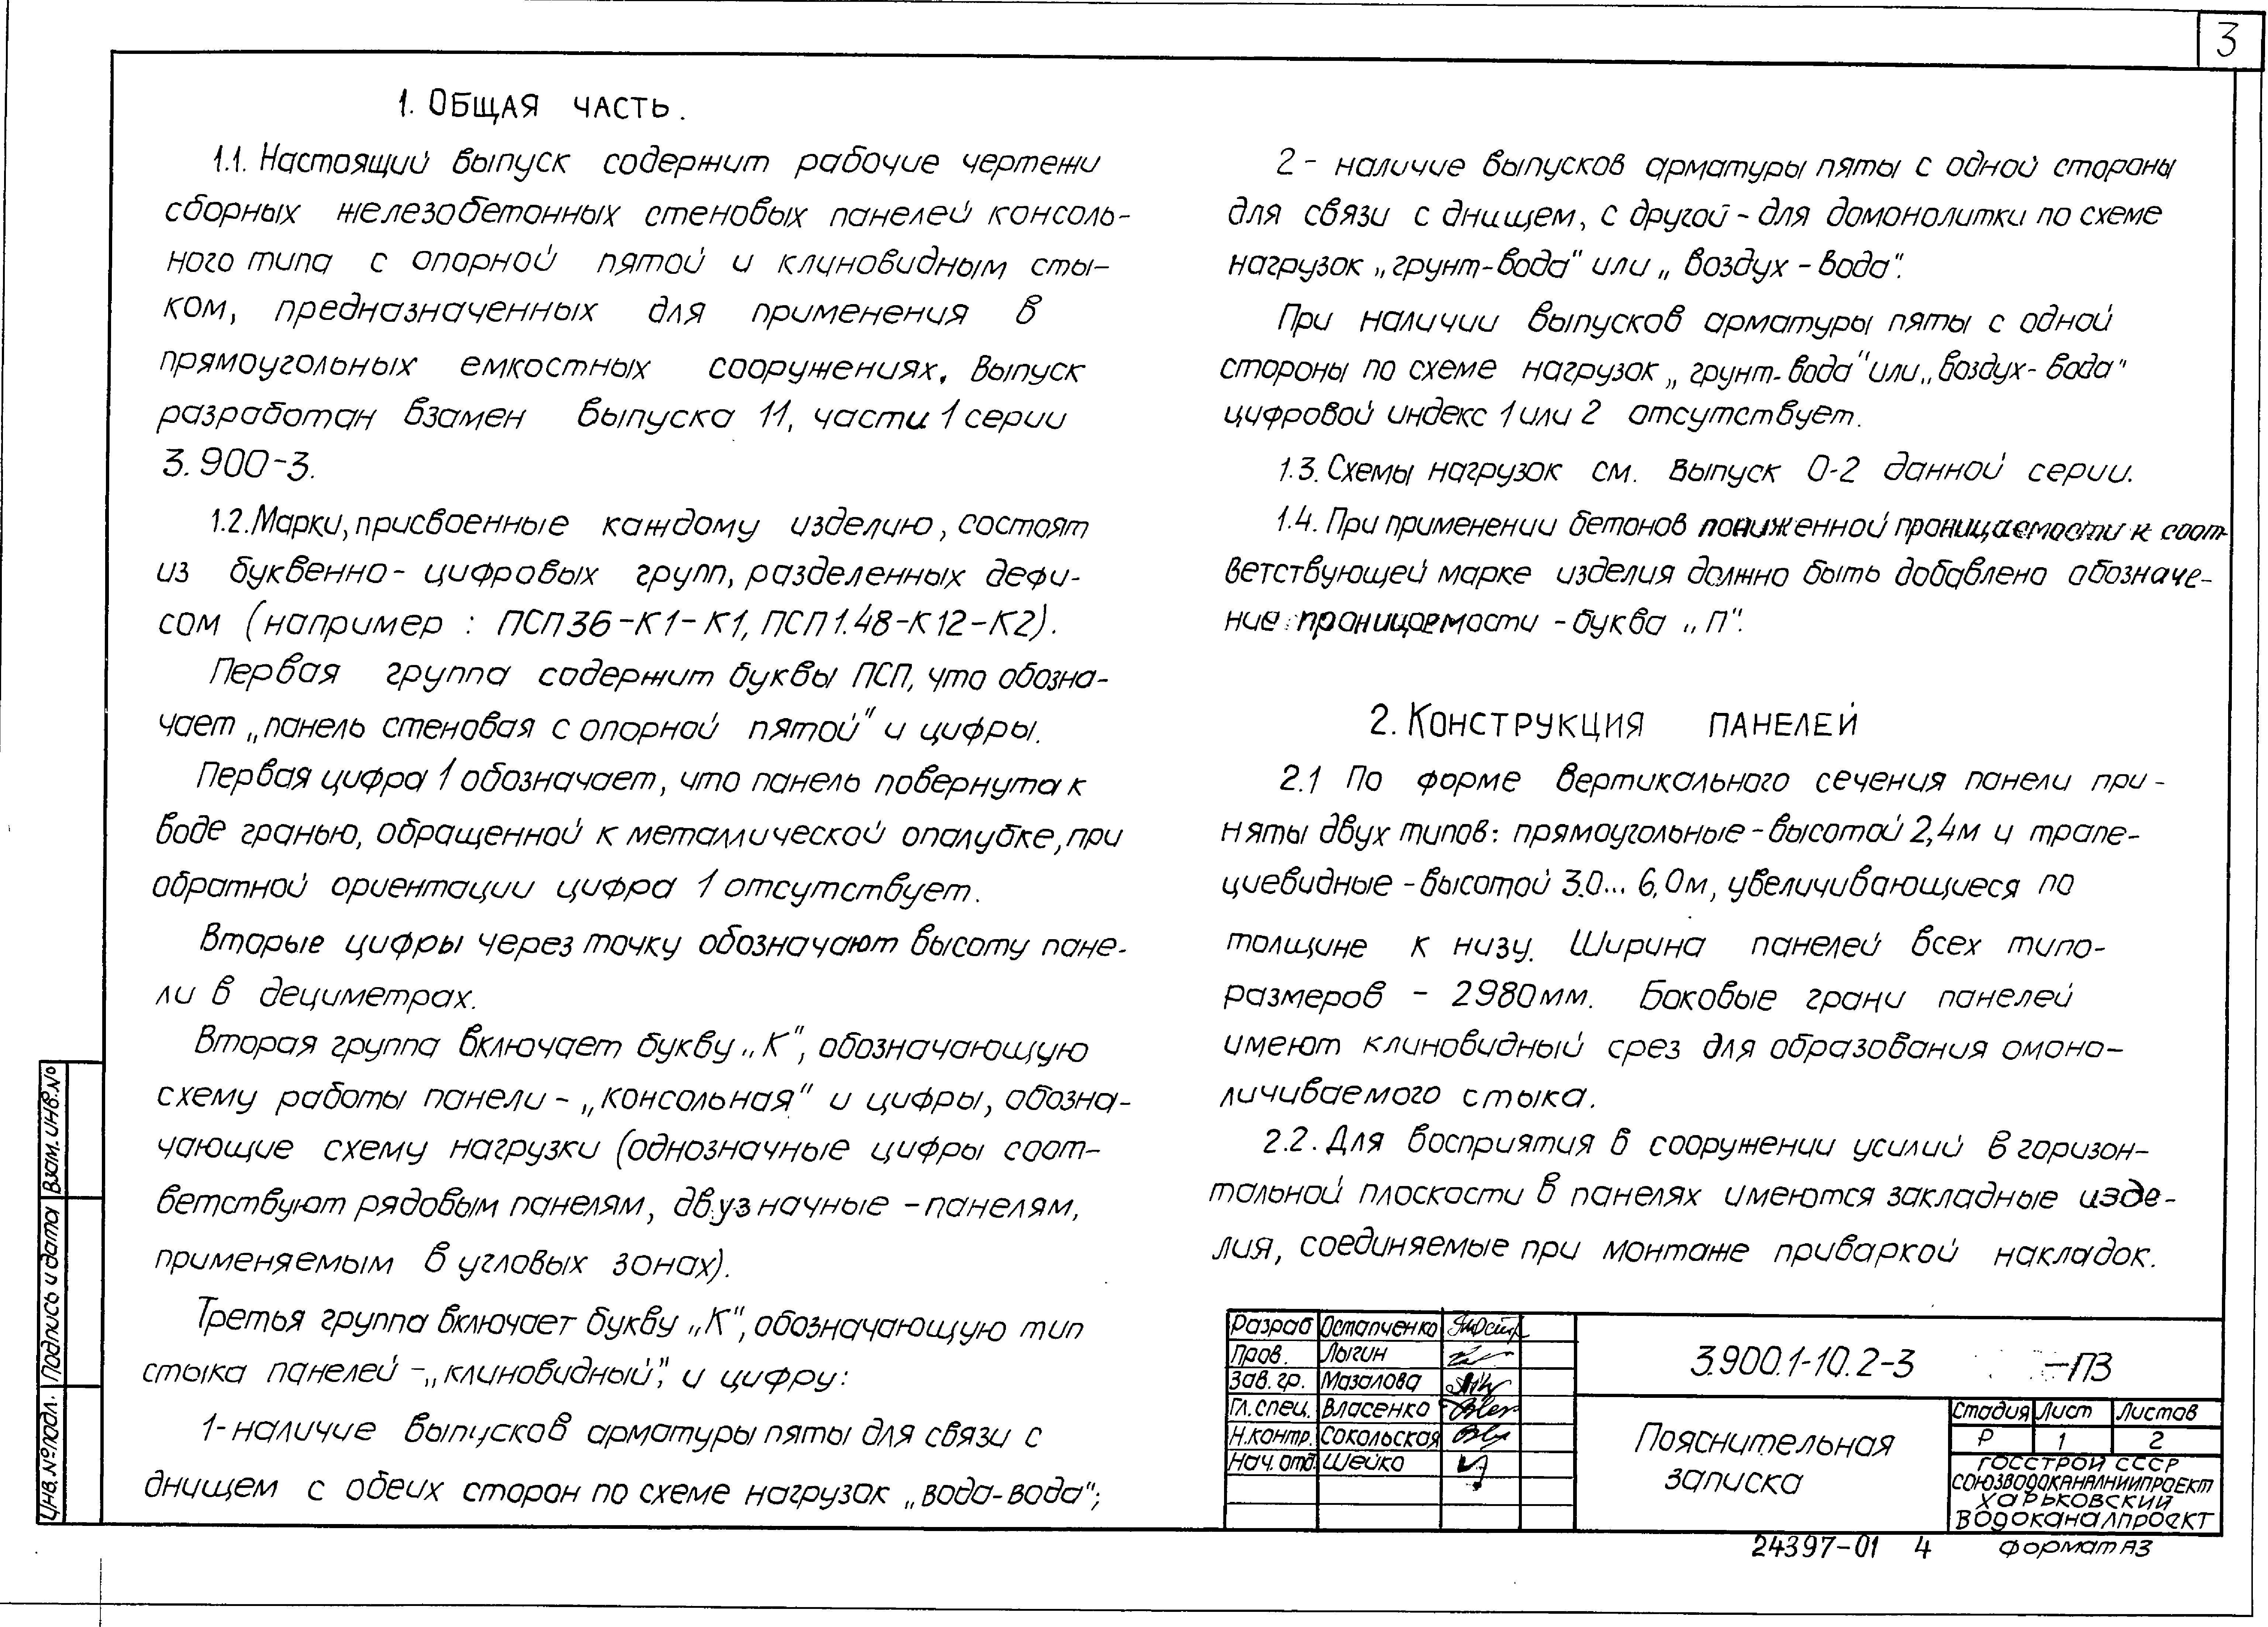 3
1. ОБЩАЯ ЧАСТЬ.
1.1. Настоящий выпуск содержит рабочие чертежи
сборных железобетонных стеновых панелей консоль-
ного типа с опорной пятой и клиновидным сты-
ком, предназначенных для применения в
прямоугольных емкостных сооружениях. Выпуск
разработан взамен выпуска 11, части 1 серии
3.900-3.
1.2. Марки, присвоенные каждому изделию, состоят
из буквенно-цифровых групп, разделенных дефи-
сом (например : ПСП36-К1-К1, ПСП1.48-К12-К2).
Первая группа содержит буквы ПСП, что обозна-
чает „панель стеновая с опорной пятой" и цифры.
Первая цифра 1 обозначает, что панель повернута к
воде гранью, обращенной к металлической опалубке, при
обратной ориентации цифра 1 отсутствует.
Вторые цифры через точку обозначают высоту пане-
ли в дециметрах.
Вторая группа включает букву „К", обозначающую
схему работы панели - „консольная" и цифры, обозна-
чающие схему нагрузки (однозначные цифры соот-
ветствуют рядовым панелям, двузначные - панелям,
применяемым в угловых зонах).
Третья группа включает букву „К", обозначающую тип
стыка панелей - „клиновидный", и цифру:
1- наличие выпусков арматуры пяты для связи с
днищем с обеих сторон по схеме нагрузок „вода-вода";
2 - наличие выпусков арматуры пяты с одной стороны
для связи с днищем, с другой - для домонолитки по схеме
нагрузок „грунт-вода" или „ воздух - вода".
При наличии выпусков арматуры пяты с одной
стороны по схеме нагрузок „ грунт-вода" или „воздух-вода"
цифровой индекс 1 или 2 отсутствует.
1.3. Схемы нагрузок см. выпуск 0-2 данной серии.
1.4. При применении бетонов пониженной проницаемости к соот-
ветствующей марке изделия должно быть добавлено обозначе-
ние проницаемости - буква „П".
2. КОНСТРУКЦИЯ ПАНЕЛЕЙ
2.1 По форме вертикального сечения панели при-
няты двух типов: прямоугольные - высотой 2,4м и трапе-
циевидные - высотой 3.0... 6,0м, увеличивающиеся по
толщине к низу. Ширина панелей всех типо-
размеров - 2980мм. Боковые грани панелей
имеют клиновидный срез для образования омоно-
личиваемого стыка.
2.2. Для восприятия в сооружении усилий в горизон-
тальной плоскости в панелях имеются закладные изде-
лия, соединяемые при монтаже приваркой накладок.
Взам. инв. №
Подпись и дата
Инв. № подл.
Разраб Остапченко
Пров. Лыгин
Зав. гр. Мазалова
Гл. спец. Власенко
Н.контр. Сокольская
Нач. отд. Шейко
3.900.1-10.2-3 -ПЗ
Пояснительная
записка
Стадия Лист Листов
Р 1 2
ГОССТРОЙ СССР
СОЮЗВОДОКАНАЛНИИПРОЕКТ
ХАРЬКОВСКИЙ
ВОДОКАНАЛПРОЕКТ
24397-01 4 формат А3